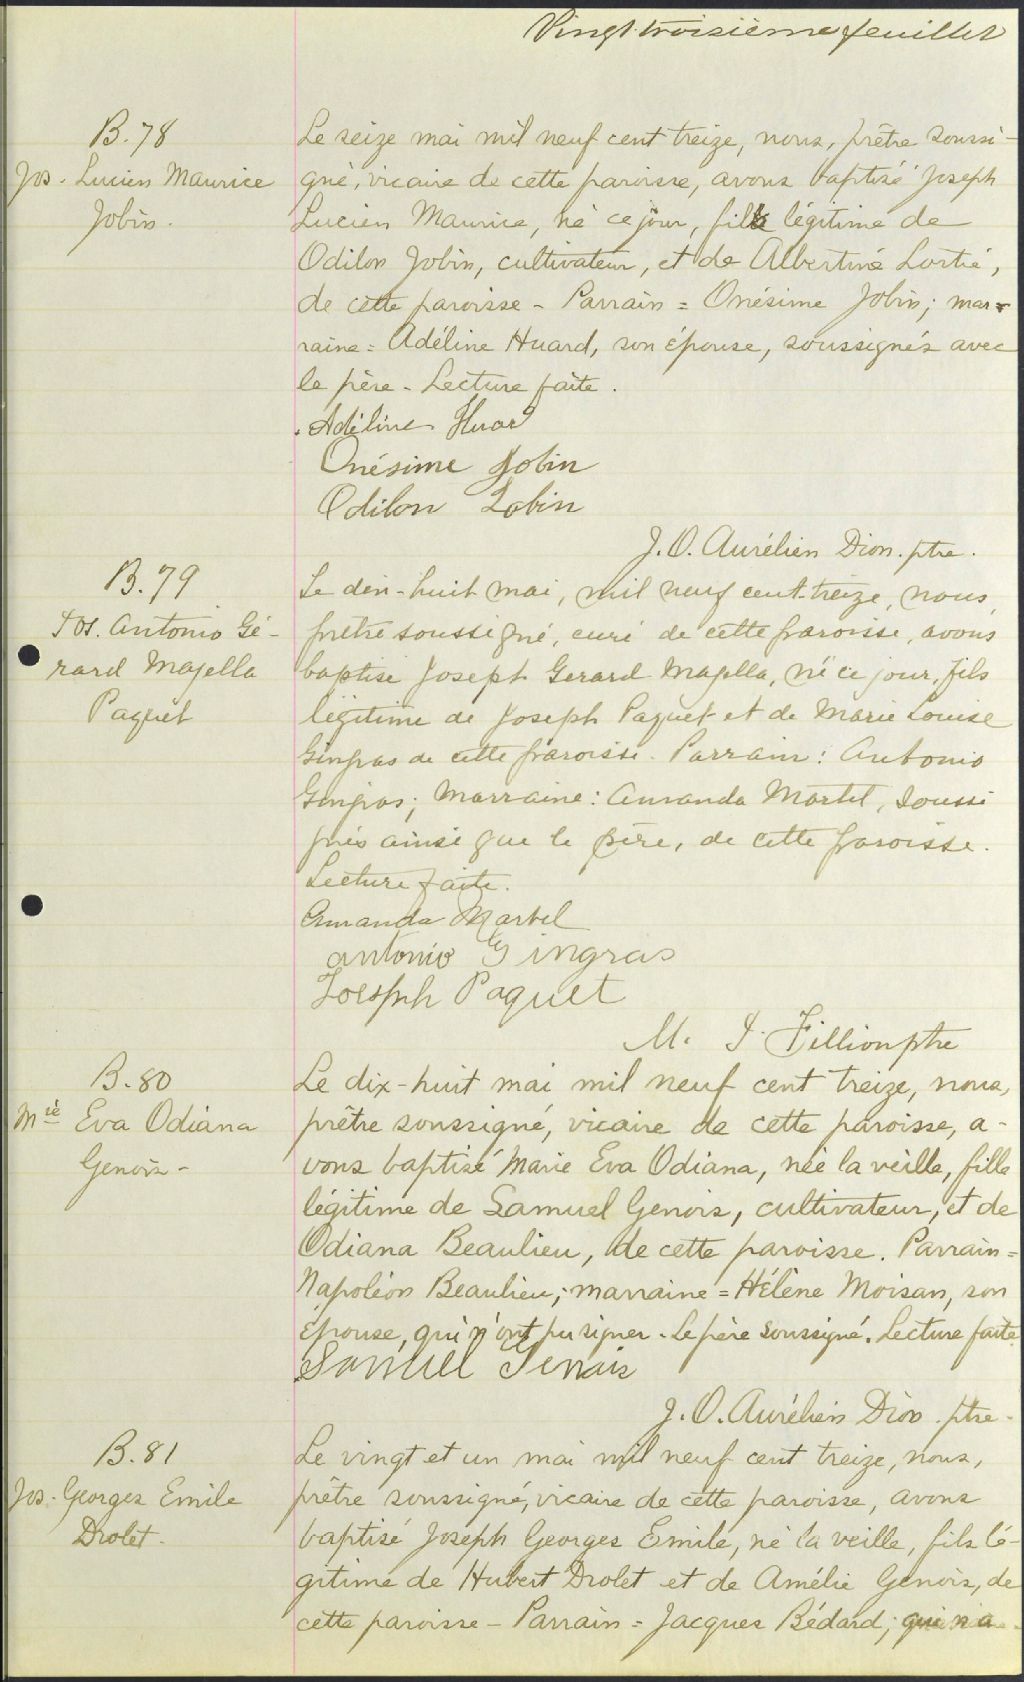 Vingt-troisième feuillet
B. 78
Jos. Lucien Maurice
Jobin.
Le seize mai mil neuf cent treize, nous, prêtre soussi-
gné, vicaire de cette paroisse, avons baptisé Joseph
Lucien Maurice, né ce jour, fils légitime de
Odilon Jobin, cultivateur, et de Albertine Lortie,
de cette paroisse - Parrain = Onésime Jobin; mar-
raine = Adéline Huard, son épouse, soussignés avec
le père - Lecture faite.
Adéline Huard
Onésime Jobin
Odilon Jobin
J. O. Aurélien Dion. ptre.
B. 79
Jos. Antonio Gé-
rard Majella
Paquet
Le dix-huit mai, mil neuf cent-treize, nous,
prêtre soussigné, curé de cette paroisse, avons
baptisé Joseph Gerard Majella, né ce jour, fils
légitime de Joseph Paquet et de Marie Louise
Gingras de cette paroisse. Parrain: Antonio
Gingras; Marraine: Amanda Martel, soussi
gnés ainsi que le père, de cette paroisse.
Lecture faite.
Amanda Martel
antonio Gingras
Joesph Paquet
M. J. Fillion ptre
B. 80
Mie Eva Odiana
Genois -
Le dix-huit mai mil neuf cent treize, nous,
prêtre soussigné, vicaire de cette paroisse, a-
vons baptisé Marie Eva Odiana, née la veille, fille
légitime de Samuel Genois, cultivateur, et de
Odiana Beaulieu, de cette paroisse. Parrain =
Napoléon Beaulieu; marraine = Hélène Moisan, son
épouse, qui n'ont pu signer - Le père soussigné. Lecture faite
Samuel Genois
J. O. Aurélien Dion. ptre -
B. 81
Jos. Georges Emile
Drolet.
Le vingt et un mai mil neuf cent treize, nous,
prêtre soussigné, vicaire de cette paroisse, avons
baptisé Joseph Georges Emile, né la veille, fils lé-
gitime de Hubert Drolet et de Amélie Genois, de
cette paroisse - Parrain = Jacques Bédard; qui n'a